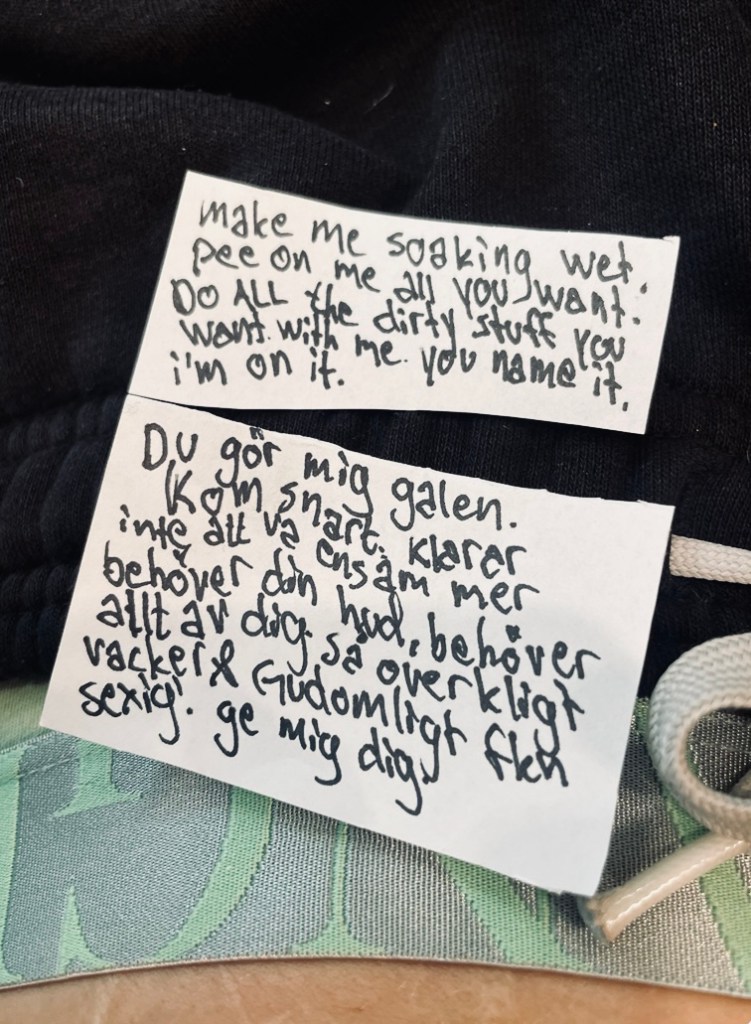 make me soaking wet.
pee on me all you want.
Do ALL the dirty stuff you
want with me. you name it,
i'm on it.
Du gör mig galen.
Kom snart. klarar
inte att va ensam mer
behöver din hud, behöver
allt av dig. så overkligt
vacker & Gudomligt fkn
sexig. ge mig dig.